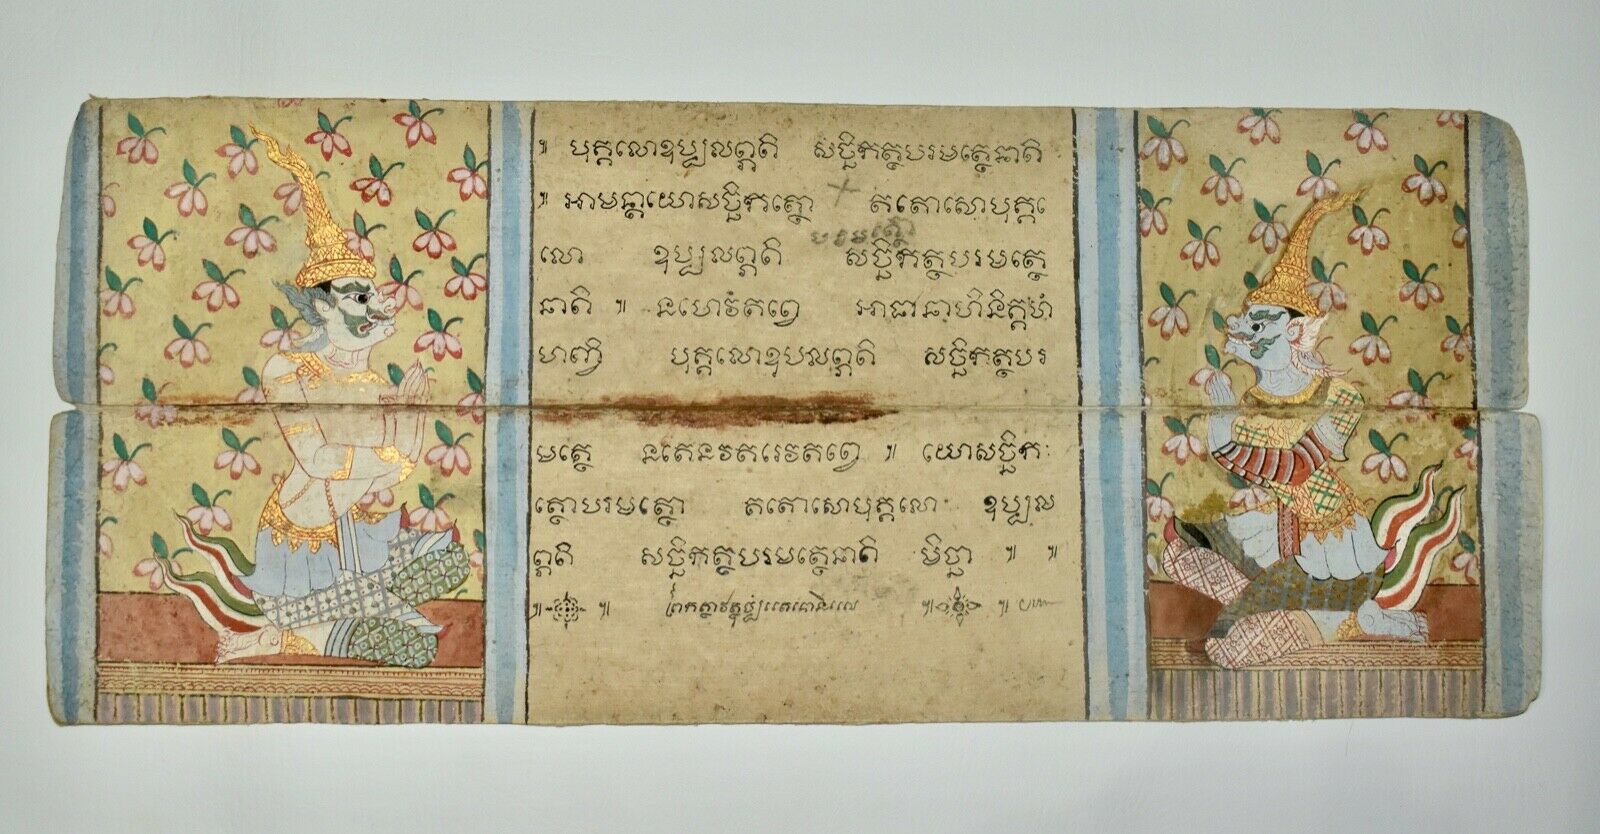 ៕ បុគ្គលោឧប្បលព្ភតិ សច្ឆិកត្ថបរមត្ថេនាតិ
៕ អាមន្តាយោសច្ឆិកត្ថោ + តតោសោបុគ្គ
បរមត្ថោ
លោ ឧប្បលព្ភតិ សច្ឆិកត្ថបរមត្ថេ
នាតិ ៕ នហេវំតព្វេ អាជានាហិនិគ្គហំ
ហញ្ចិ បុគ្គលោឧបលព្ភតិ សច្ឆិកត្ថបរ
មត្ថេ នតេនវតរេវតព្វេ ៕ យោសច្ឆិក
ត្ថោបរមត្ថោ តតោសោបុគ្គលោ ឧប្បល
ព្ភតិ សច្ឆិកត្ថបរមត្ថេនាតិ មិច្ឆា ៕ ៕